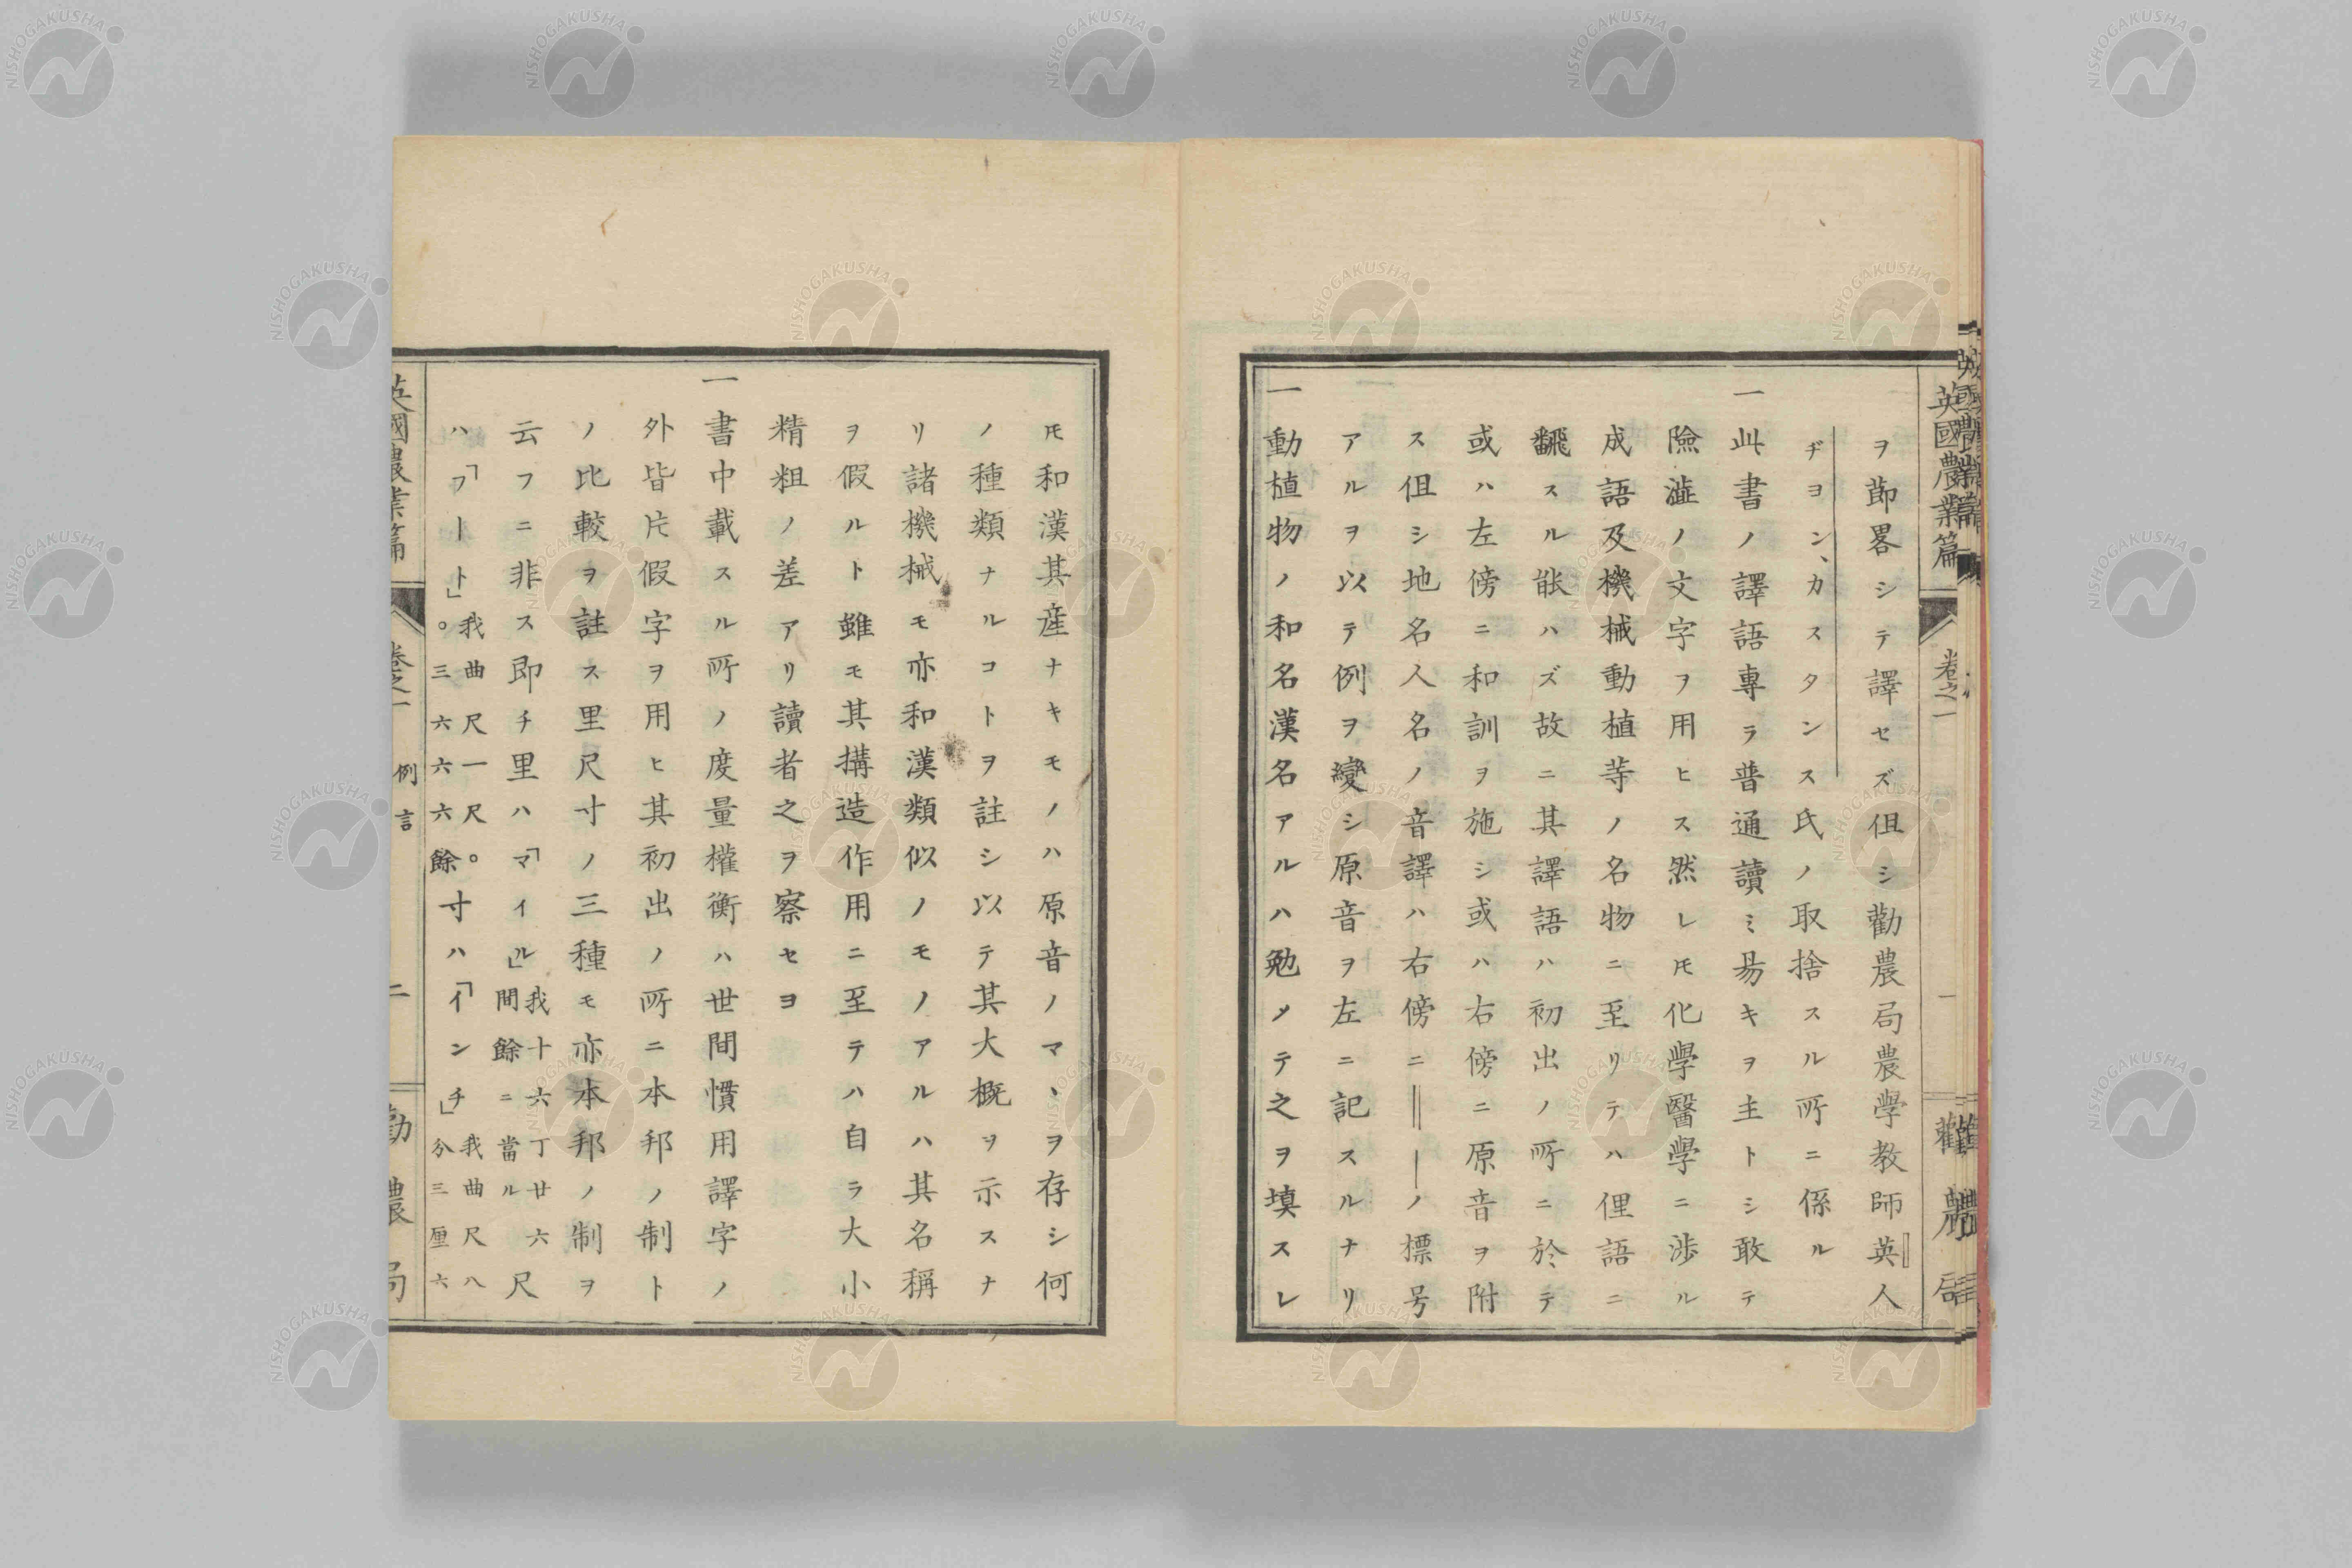 英國農業篇
卷之一
ヲ節畧シテ譯セズ但シ勸農局農学教師英人
ヂヨン、カスタンス氏ノ取捨スル所ニ係ル
一此書ノ譯語專ラ普通讀ミ昜キヲ主トシ敢テ
險澁ノ文字ヲ用ヒス然レ𪜈化學醫學ニ渉ル
成語及機械動植等ノ名物ニ至リテハ俚語ニ
飜スル能ハズ故ニ其譯語ハ初出ノ所ニ於テ
或ハ左傍ニ和訓ヲ施シ或ハ右傍ニ原音ヲ附
ス但シ地名人名ノ音譯ハ右傍ニ‖│ノ標号
アルヲ以テ例ヲ變シ原音ヲ左ニ記スルナリ
一動植物ノ和名漢名アルハ勉メテ之ヲ塡スレ
𪜈和漢其産ナキモノハ原音ノマヽヲ存シ何
ノ種類ナルコトヲ註シ以テ其大概ヲ示スナ
リ諸機械モ亦和漢類似ノモノアルハ其名稱
ヲ假ルト雖モ其搆造作用ニ至テハ自ラ大小
精粗ノ差アリ讀者之ヲ察セヨ
一書中載スル所ノ度量權衡ハ世間慣用譯字ノ
外皆片假字ヲ用ヒ其初出ノ所ニ本邦ノ制ト
ノ比較ヲ註ス里尺寸ノ三種モ亦本邦ノ制ヲ
云フニ非ス即チ里ハ「マイル」我十六丁廿六尺間餘ニ當ル
ハ「フート」我曲尺一尺。。三六六六餘寸ハ「インチ」我曲尺八分三厘六
英國農業篇
卷之一
例言
二
勸農局